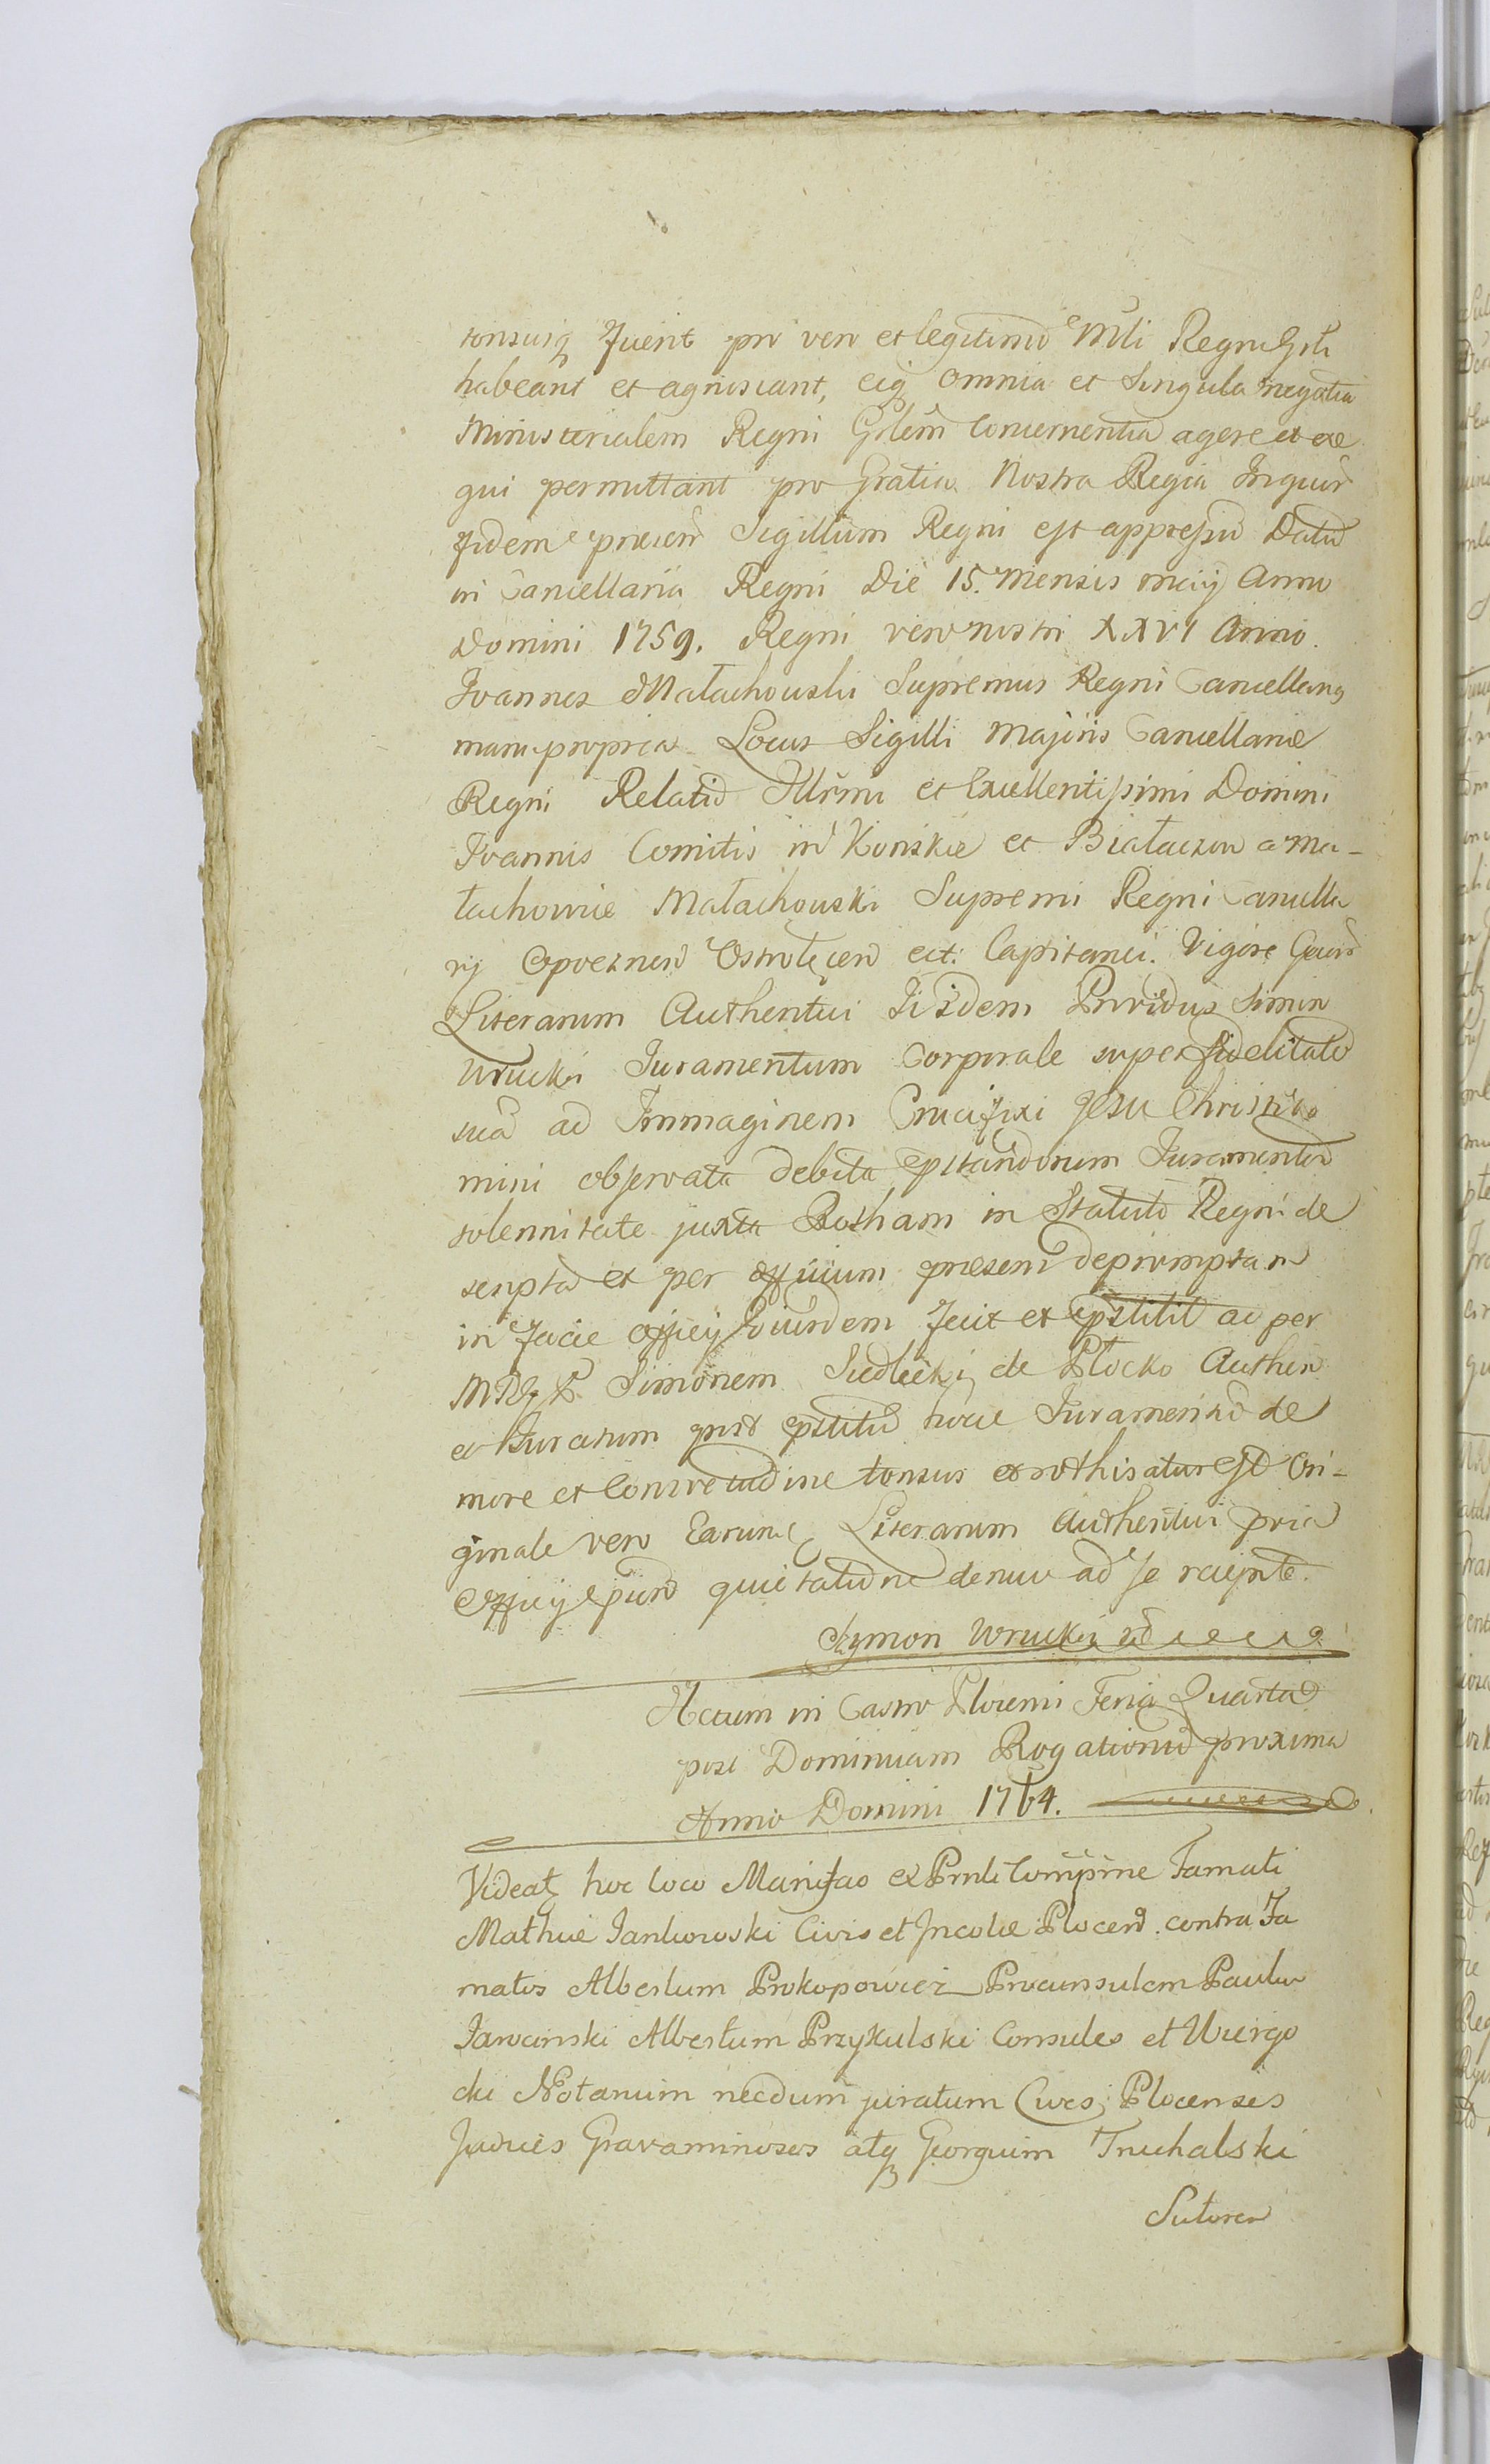 tonsusq fuerit pro vero et legitimo Mli Regni Gnli
habeant et agnoscant, eiq omnia et Singula negotia
Ministerialem Regni Gnlem Concernentia agere et exe
qui permittant pro Gratia Nostra Regia Inquor
fidem praesen Sigillum Regni est appressu Datu
in Cancellaria Regni Die 15. Mensis maij Anno
Domini 1759. Regni vero nostri XXVI Anno.
Ioannes Małachouski Supremus Regni Cancellarius
manu propria Locus Sigilli Majoris Cancellariae
Regni Relatio Illrmi et Excellentissimi Domini
Ioannis Comitis in Konskie et Białaczow a Ma-
łachowice Małachouski Supremi Regni Cancella
rij Opocznen Ostrołęcen ect: Capitanei. Vigore quar
Literarum Authentici Iisdem Providus Simon
Wrucki Iuramentum Corporale super fidelitate
sua ad Immaginem Crucifixi Jesu Christi Do
mini observata debita epstandorum Iuramentor
solennitate juxta Rotham in Statuto Regni de
scripta et per officium praesens depromptam
in facie officij eiusdem fecit et epstitit ac per
Simonem Siedlecki de Płocko Authen
et Iuratum post epstitu hocce Iuramentu de
more et Consvetudine tonsus et rothisatus est Ori-
ginale vero Earumq Literarum Authentici pria
Officij epsen quietatione denuo ad se recepit.
Szymon Wrucki
Actum in Castro Plocensi Feria Quarta
post Dominicam Rogationu proxima
Anno Domini 1764.
Videatz hoc loco Manifao ex Prnli Comprne Famati
Mathiae Jankowski Civis et Incolae Plocen. contra Fa
matos Albertum Prokopowicz Proconsulem Paulu
Jarocinski Albertum Przykulski Consules et Wiergo
cki Notarium necdum juratum Cives Plocenses
Judices Gravaminosos atq Georgium Truchalski
Sutorem